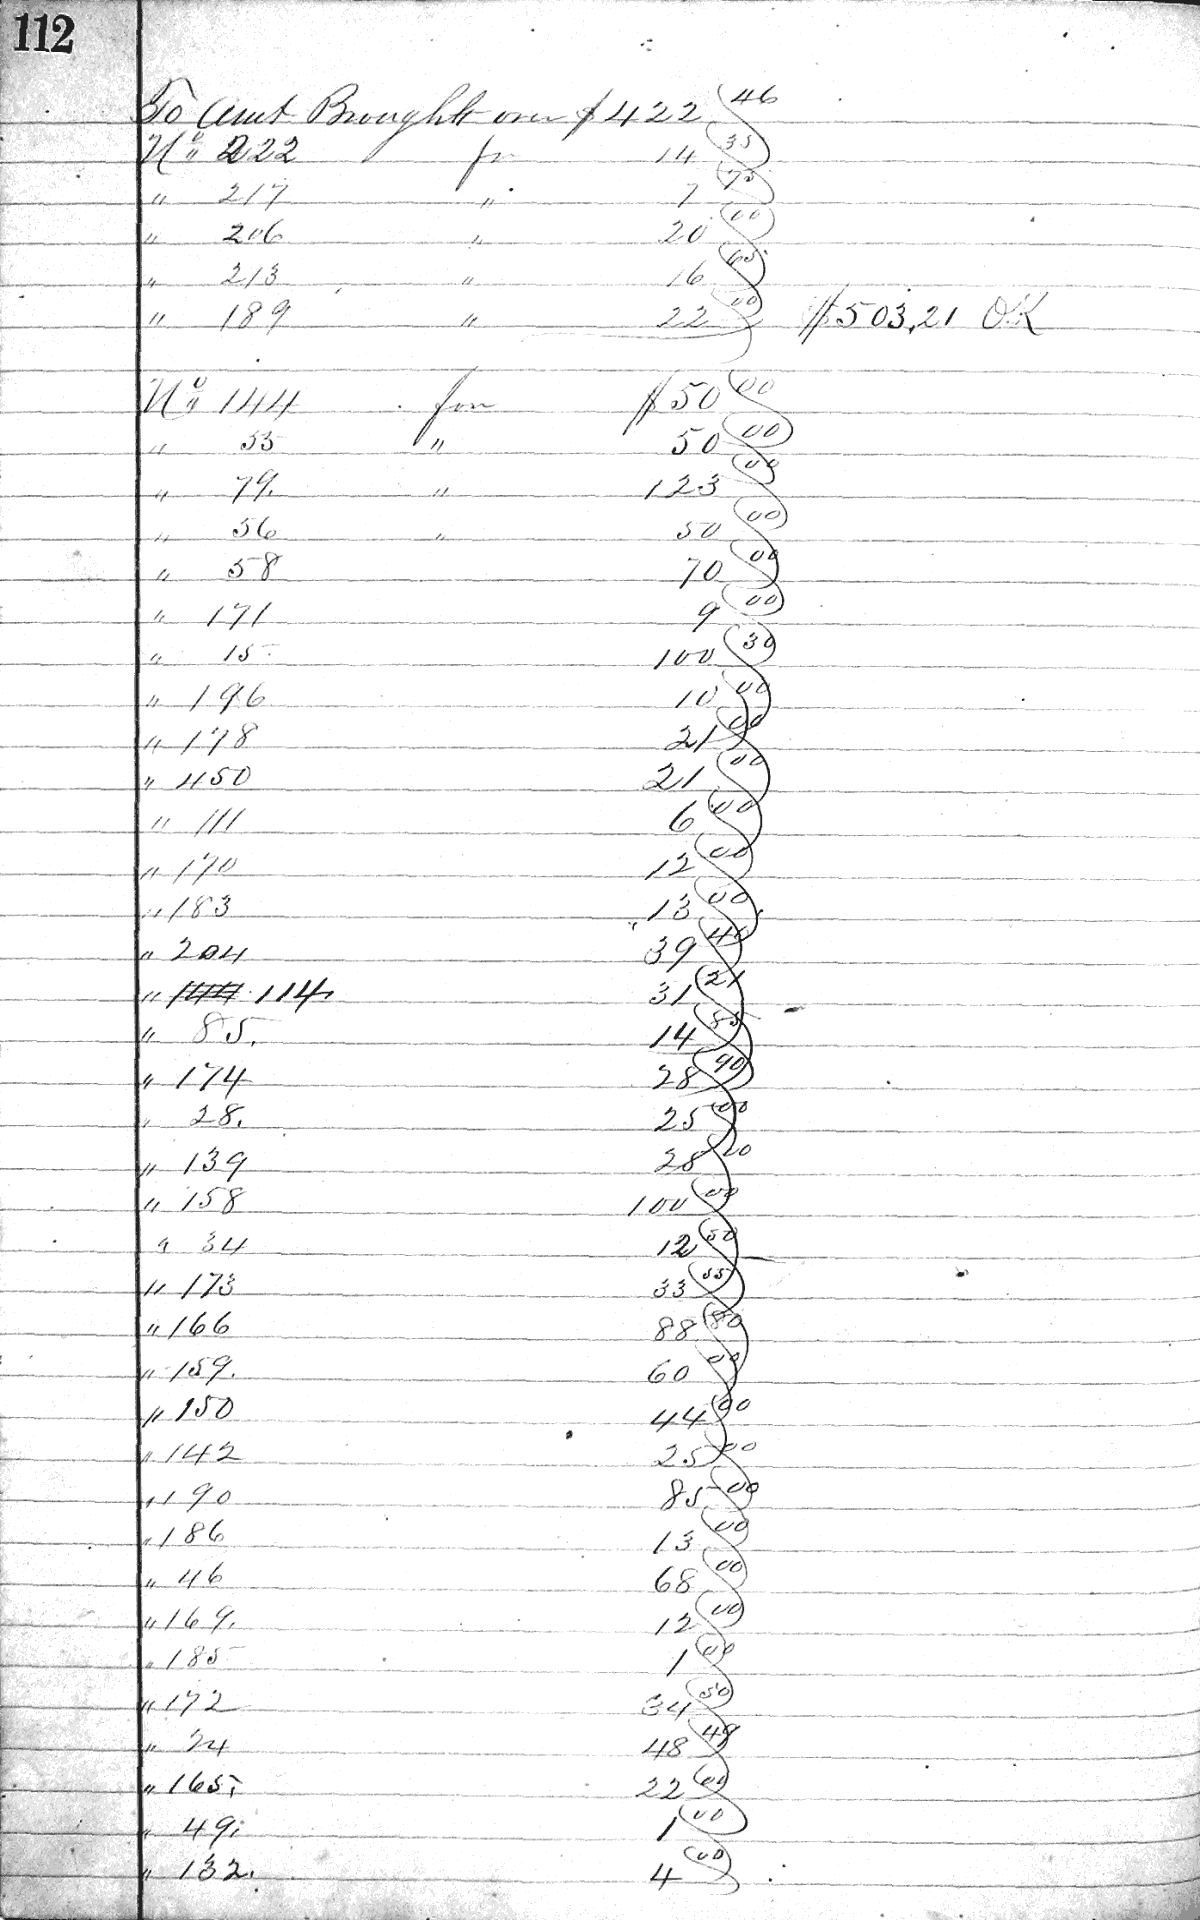 112
To Amt Brought over $422 46
No 222 for 14 35
" 217 " 7 75
" 206 " 20 00
" 213 " 16 65
" 189 " 22 00 $503,21 OK
No 144 for $50 00
" 55 " 50 00
" 79. " 123 00
" 56 " 50 00
" 58 70 00
" 171 9 00
" 15 100 30
" 196 10 00
" 178 21 00
" 450 21 00
" 111 6 00
" 170 12 00
" 183 13 00
" 204 39 40
" 144 114, 31 21
" 85. 14 85
" 174 28 90
" 28. 25 00
" 139 28 20
" 158 100 00
" 34 12 50
" 173 33 55
" 166 88 80
" 159. 60 00
" 150 44 00
" 142 25 00
" 190 85 00
" 186 13 00
" 46 68 00
" 169. 12 00
" 185 1 00
" 172 34 50
" 24 48 49
" 165, 22 00
" 49, 1 00
" 132. 4 00